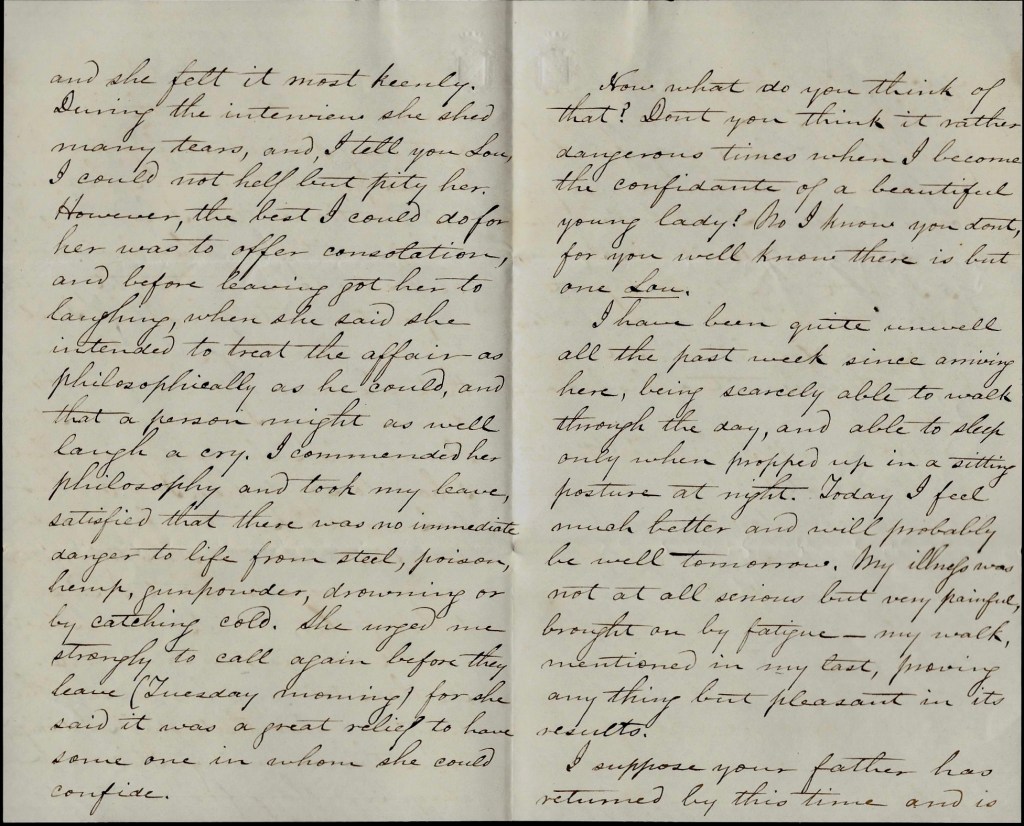 and she felt it most keenly.
During the interview she shed
many tears, and, I tell you Lou,
I could not help but pity her.
However, the best I could do for
her was to offer consolation,
and before leaving got her to
laughing, when she said she
intended to treat the affair as
philosophically as he could, and
that a person might as well
laugh a cry. I commended her
philosophy and took my leave,
satisfied that there was no immediate
danger to life from steel, poison,
hemp, gunpowder, drowning or
by catching cold. She urged me
strongly to call again before they
leave (Tuesday morning) for she
said it was a great relief to have
some one in whom she could
confide.
Now what do you think of
that? Dont you think it rather
dangerous times when I become
the confidante of a beautiful
young lady? No I know you dont,
for you well know there is but
one Lou.
I have been quite unwell
all the past week since arriving
here, being scarcely able to walk
through the day, and able to sleep
only when propped up in a sitting
posture at night. Today I feel
much better and will probably
be well tomorrow. My illness was
not at all serious but very painful,
brought on by fatigue — my walk,
mentioned in my last, proving
any thing but pleasant in its
results.
I suppose your father has
returned by this time and is